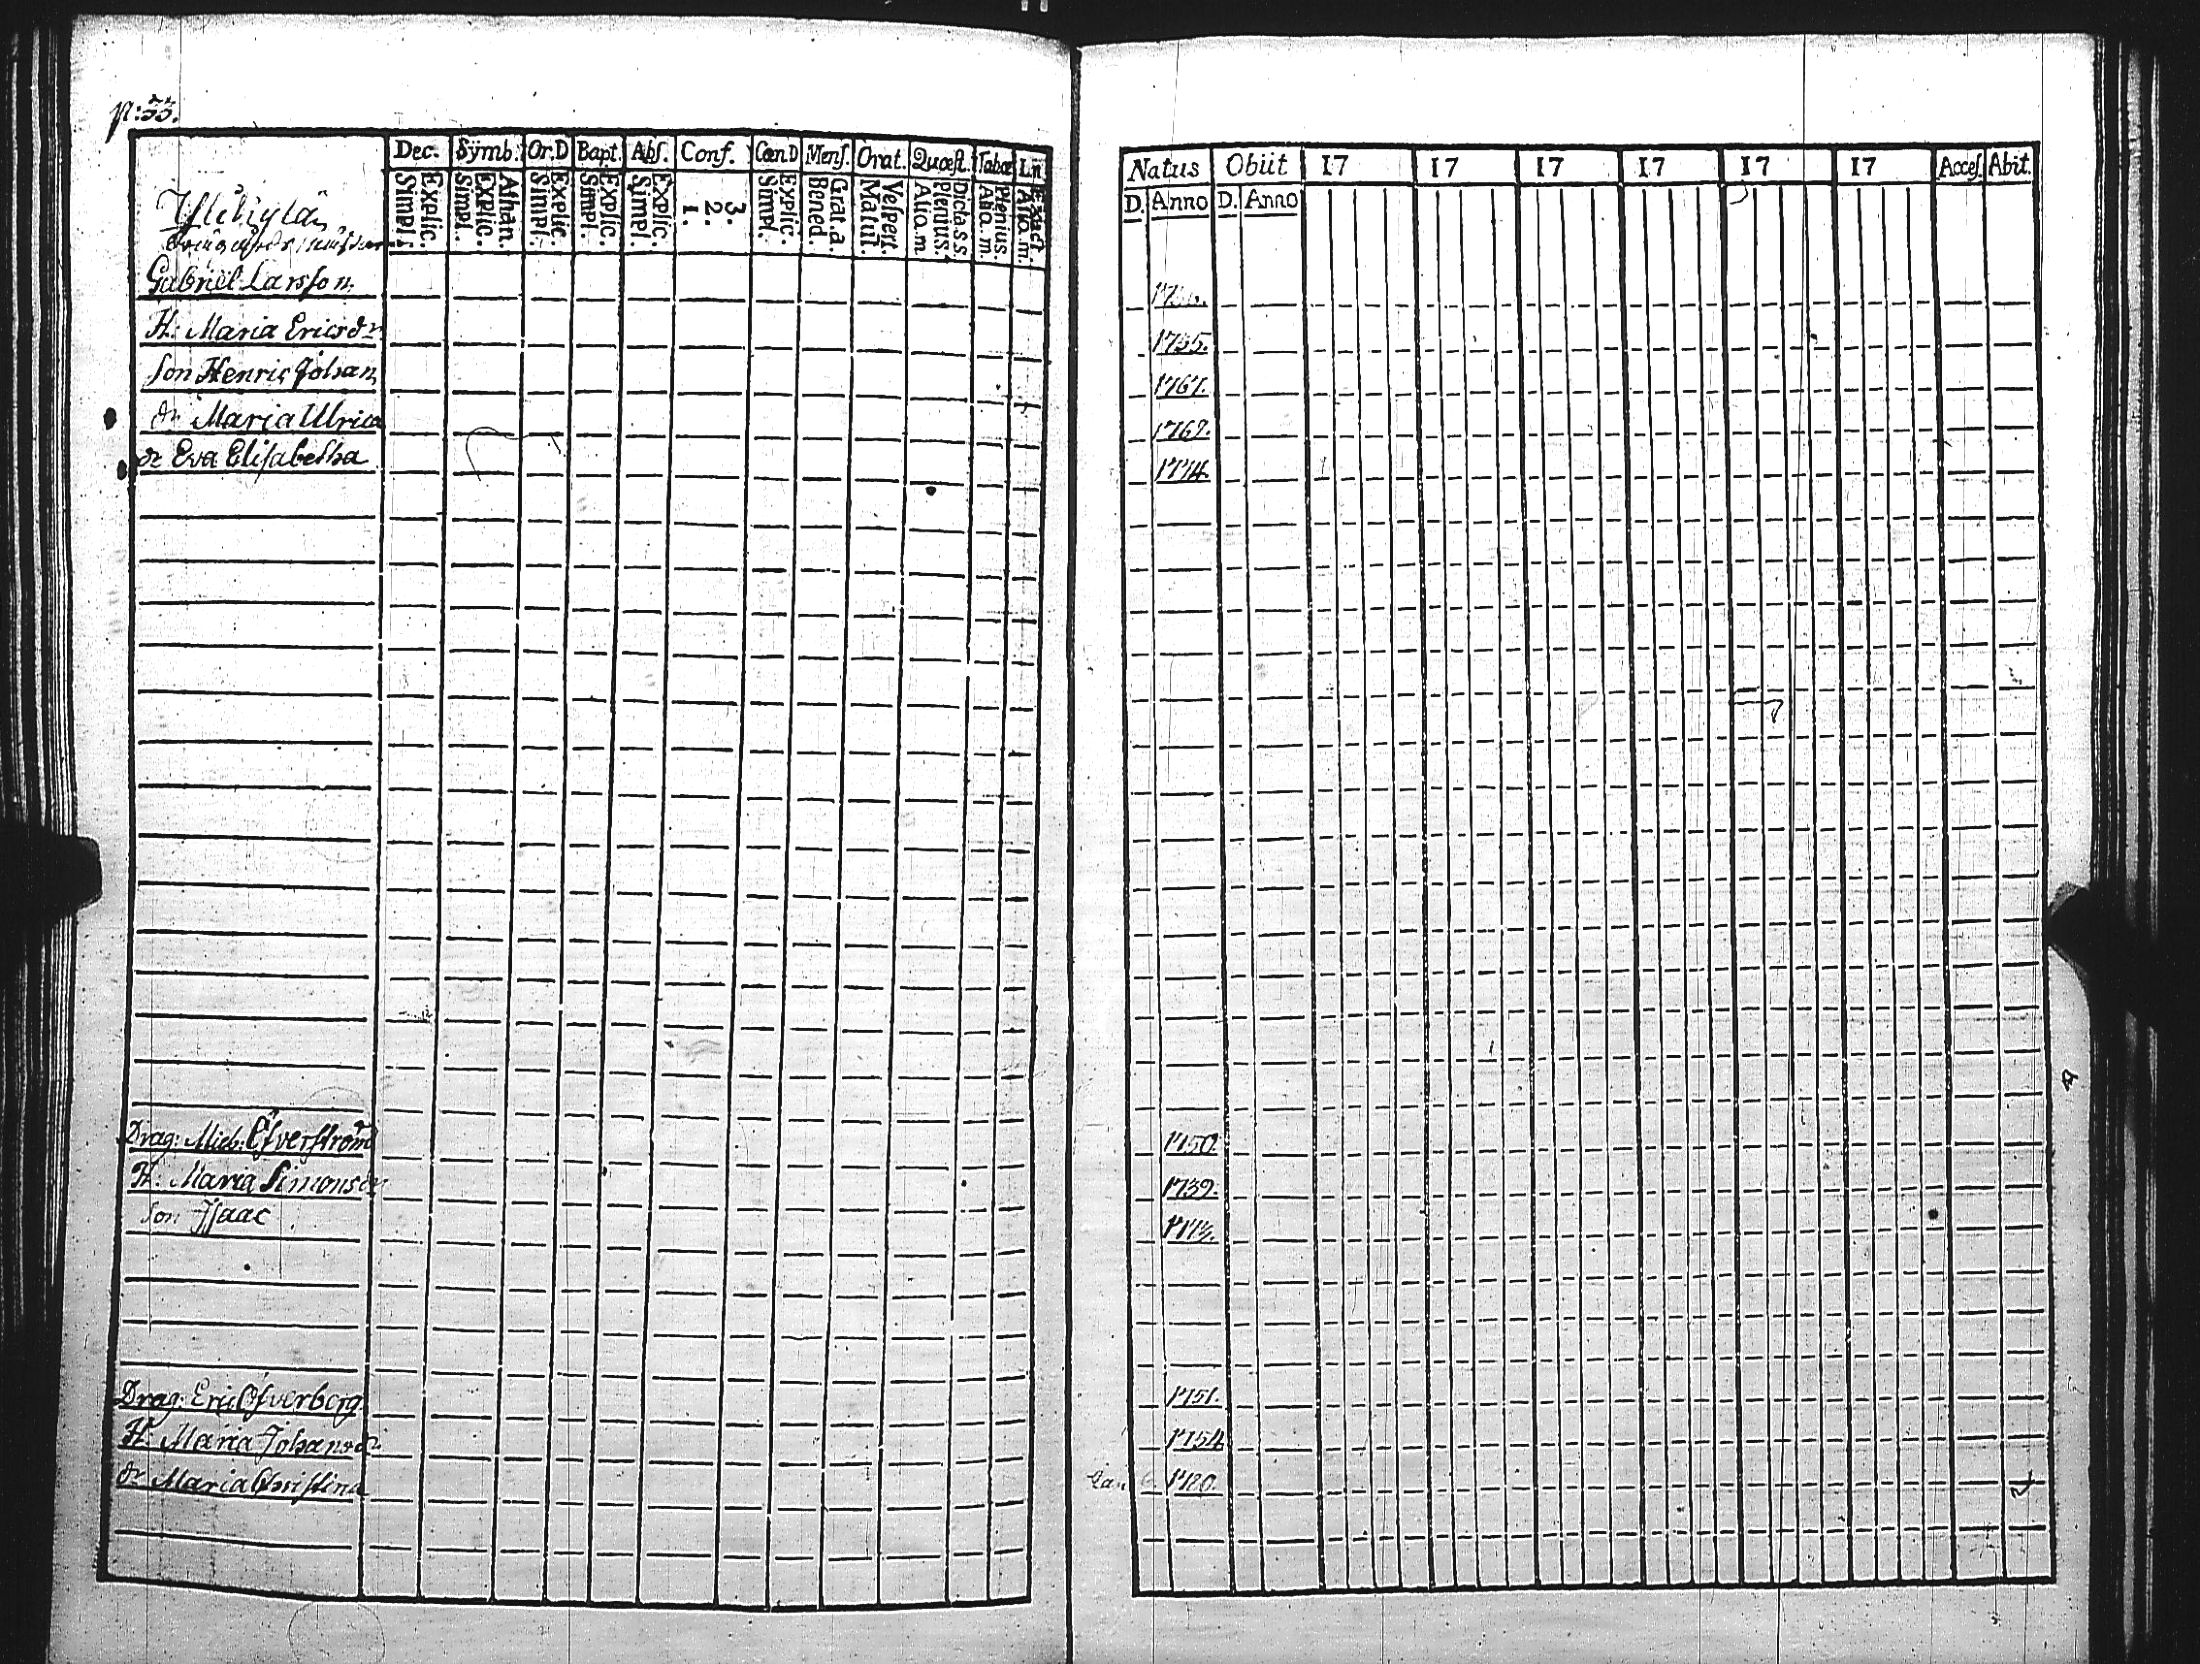 p: 33.
Dec. Symb. Or.D Bapt. Abs. Conf. Cœn.D Mens. Orat. Quæst. Tabæ Lin
Simpl. Explic. Simpl. Explic. Athan. Simpl. Explic. Simpl. Explic. Simpl. Explic. 1. 2. 3. Simpl. Explic. Bened. Grat.a. Matut. Vespert. Alio.m Plenius. Dicta.s.s. Alio.m. Plenius. Alio.m. Exact.
Gabriel Larsson
H: Maria Ericsdr
Son Henric Johan
dr Maria Ulrica
dr Eva Elisabetha
Drag: Mich: Öfverström
H: Maria Simonsdr
Son Isaac
Drag: Eric Öfverberg
H: Maria Johansdr
dr Maria Christina
Natus Obiit 17 17 17 17 17 17 Acces. Abit.
D. Anno D. Anno
1735.
1767.
1769.
1774.
1750.
1739.
1773.
1751.
1754
1780.